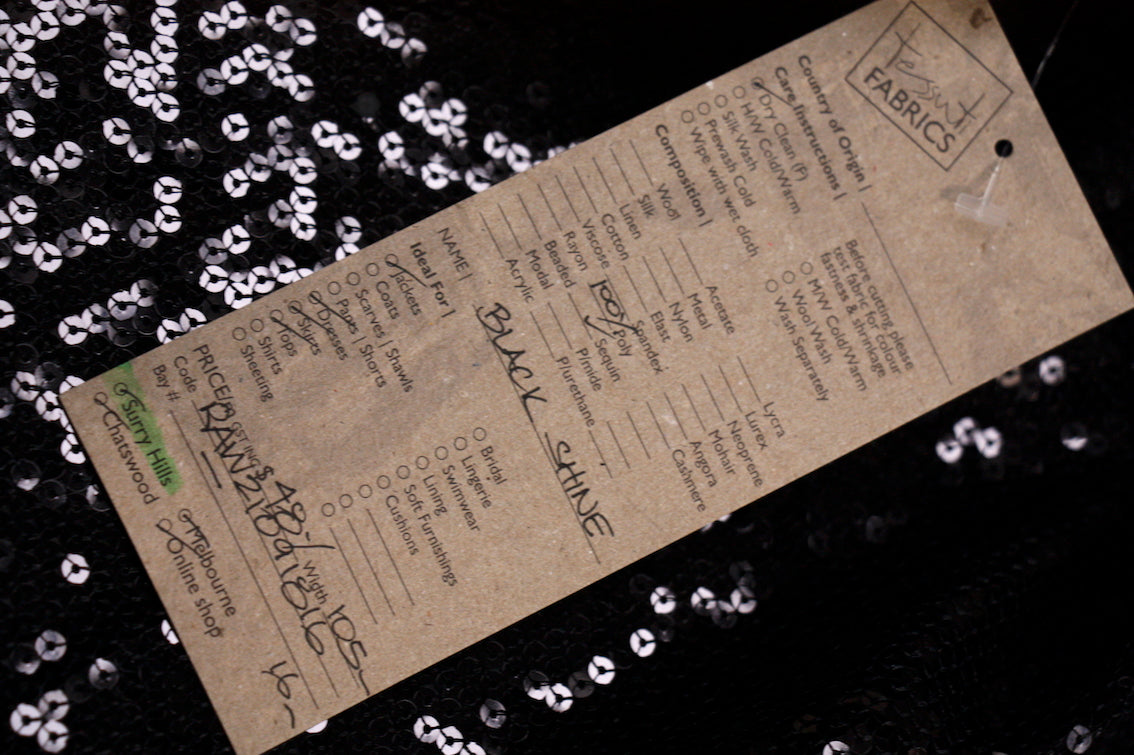 tessuti
FABRICS
Country of Origin |
Care Instructions |
Dry Clean (F)
H/W Cold/Warm
Silk Wash
Prewash Cold
Wipe with wet cloth
Before cutting please
test fabric for colour
fastness & shrinkage
M/W Cold/Warm
Wool Wash
Wash Separately
Composition |
Wool
Silk
Linen
Cotton
Viscose
Rayon
Beaded
Modal
Acrylic
Acetate
Metal
Nylon
Elast
Spandex
100% Poly
Sequin
P/mide
P/urethane
Lycra
Lurex
Neoprene
Mohair
Angora
Cashmere
NAME | BLACK SHINE
Ideal For |
Jackets
Coats
Scarves | Shawls
Pants | Shorts
Dresses
Skirts
Tops
Shirts
Sheeting
Bridal
Lingerie
Swimwear
Lining
Soft Furnishings
Cushions
Width 105
Code
Bay #
Surry Hills
Chatswood
Melbourne
Online shop